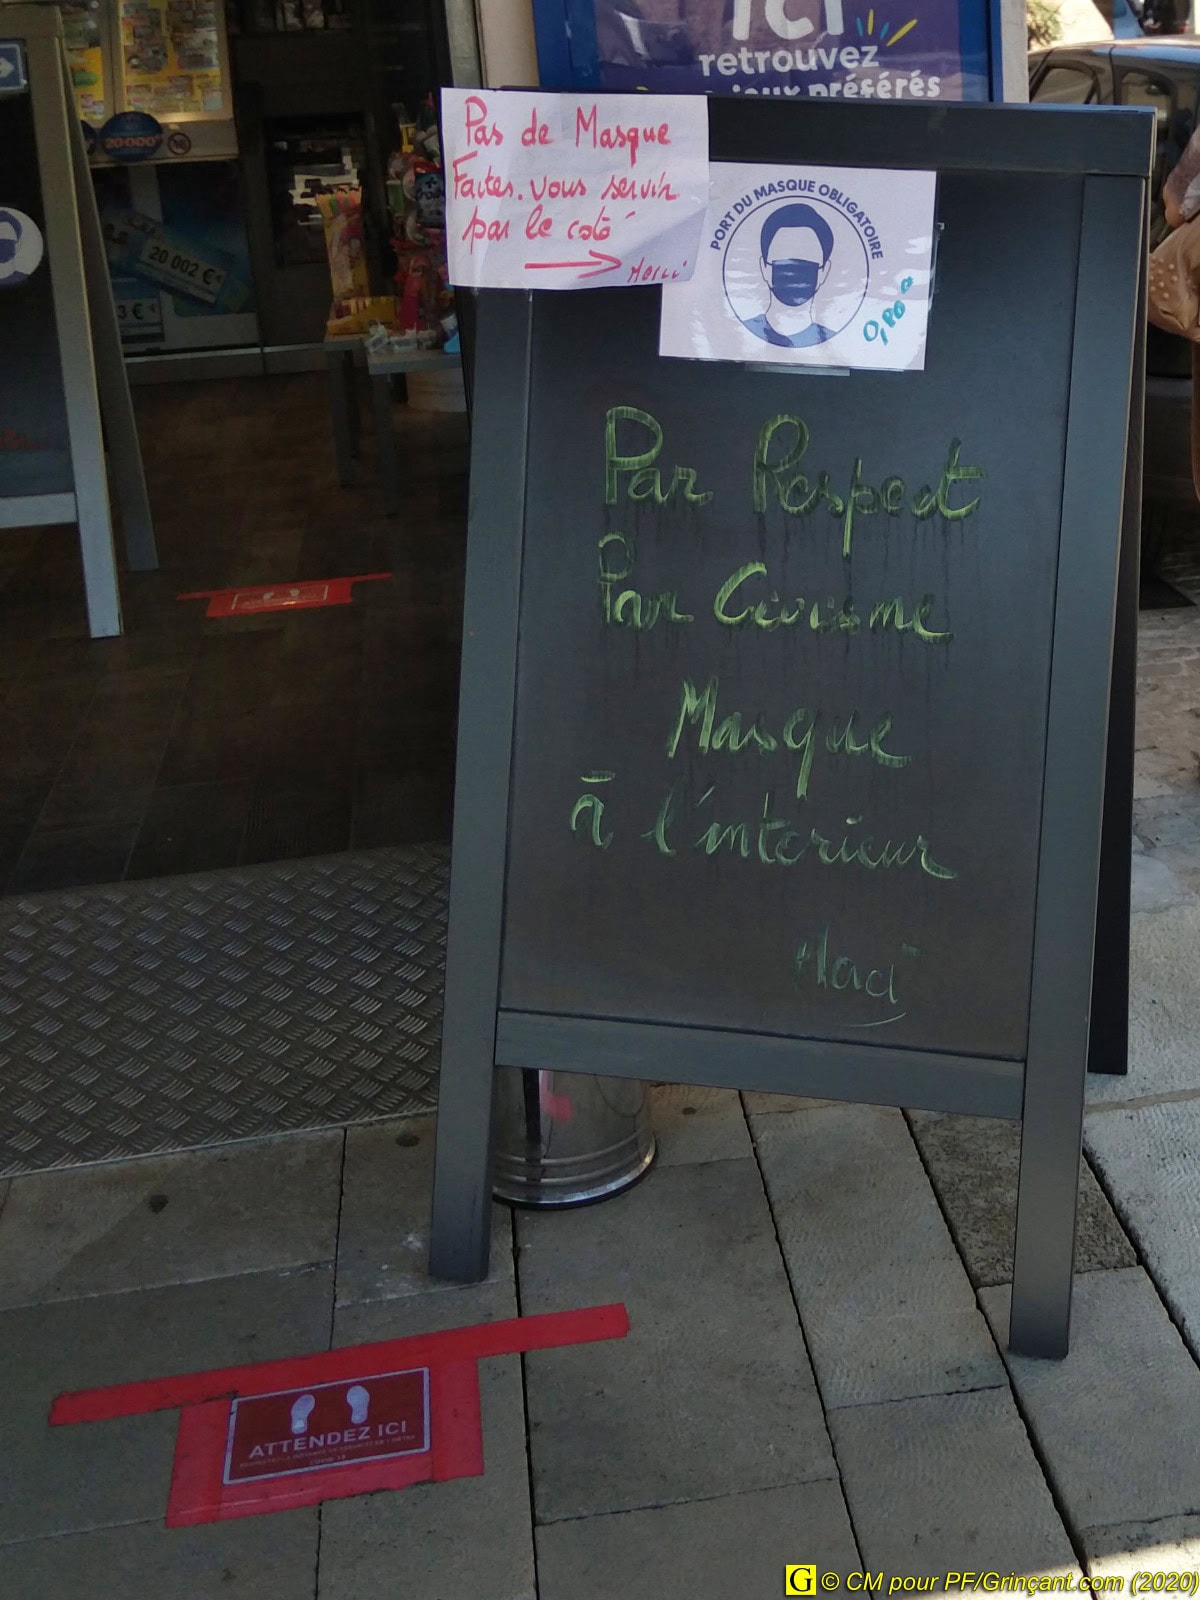 ICI
retrouvez
jeux préférés
Pas de Masque
Faites.vous servir
par le coté
Merci
PORT DU MASQUE OBLIGATOIRE
20 000€
20 002 €
3 €
Par Respect
Par Civisme
Masque
à l'interieur
Merci
ATTENDEZ ICI
G © CM pour PF/Grinçant.com (2020)